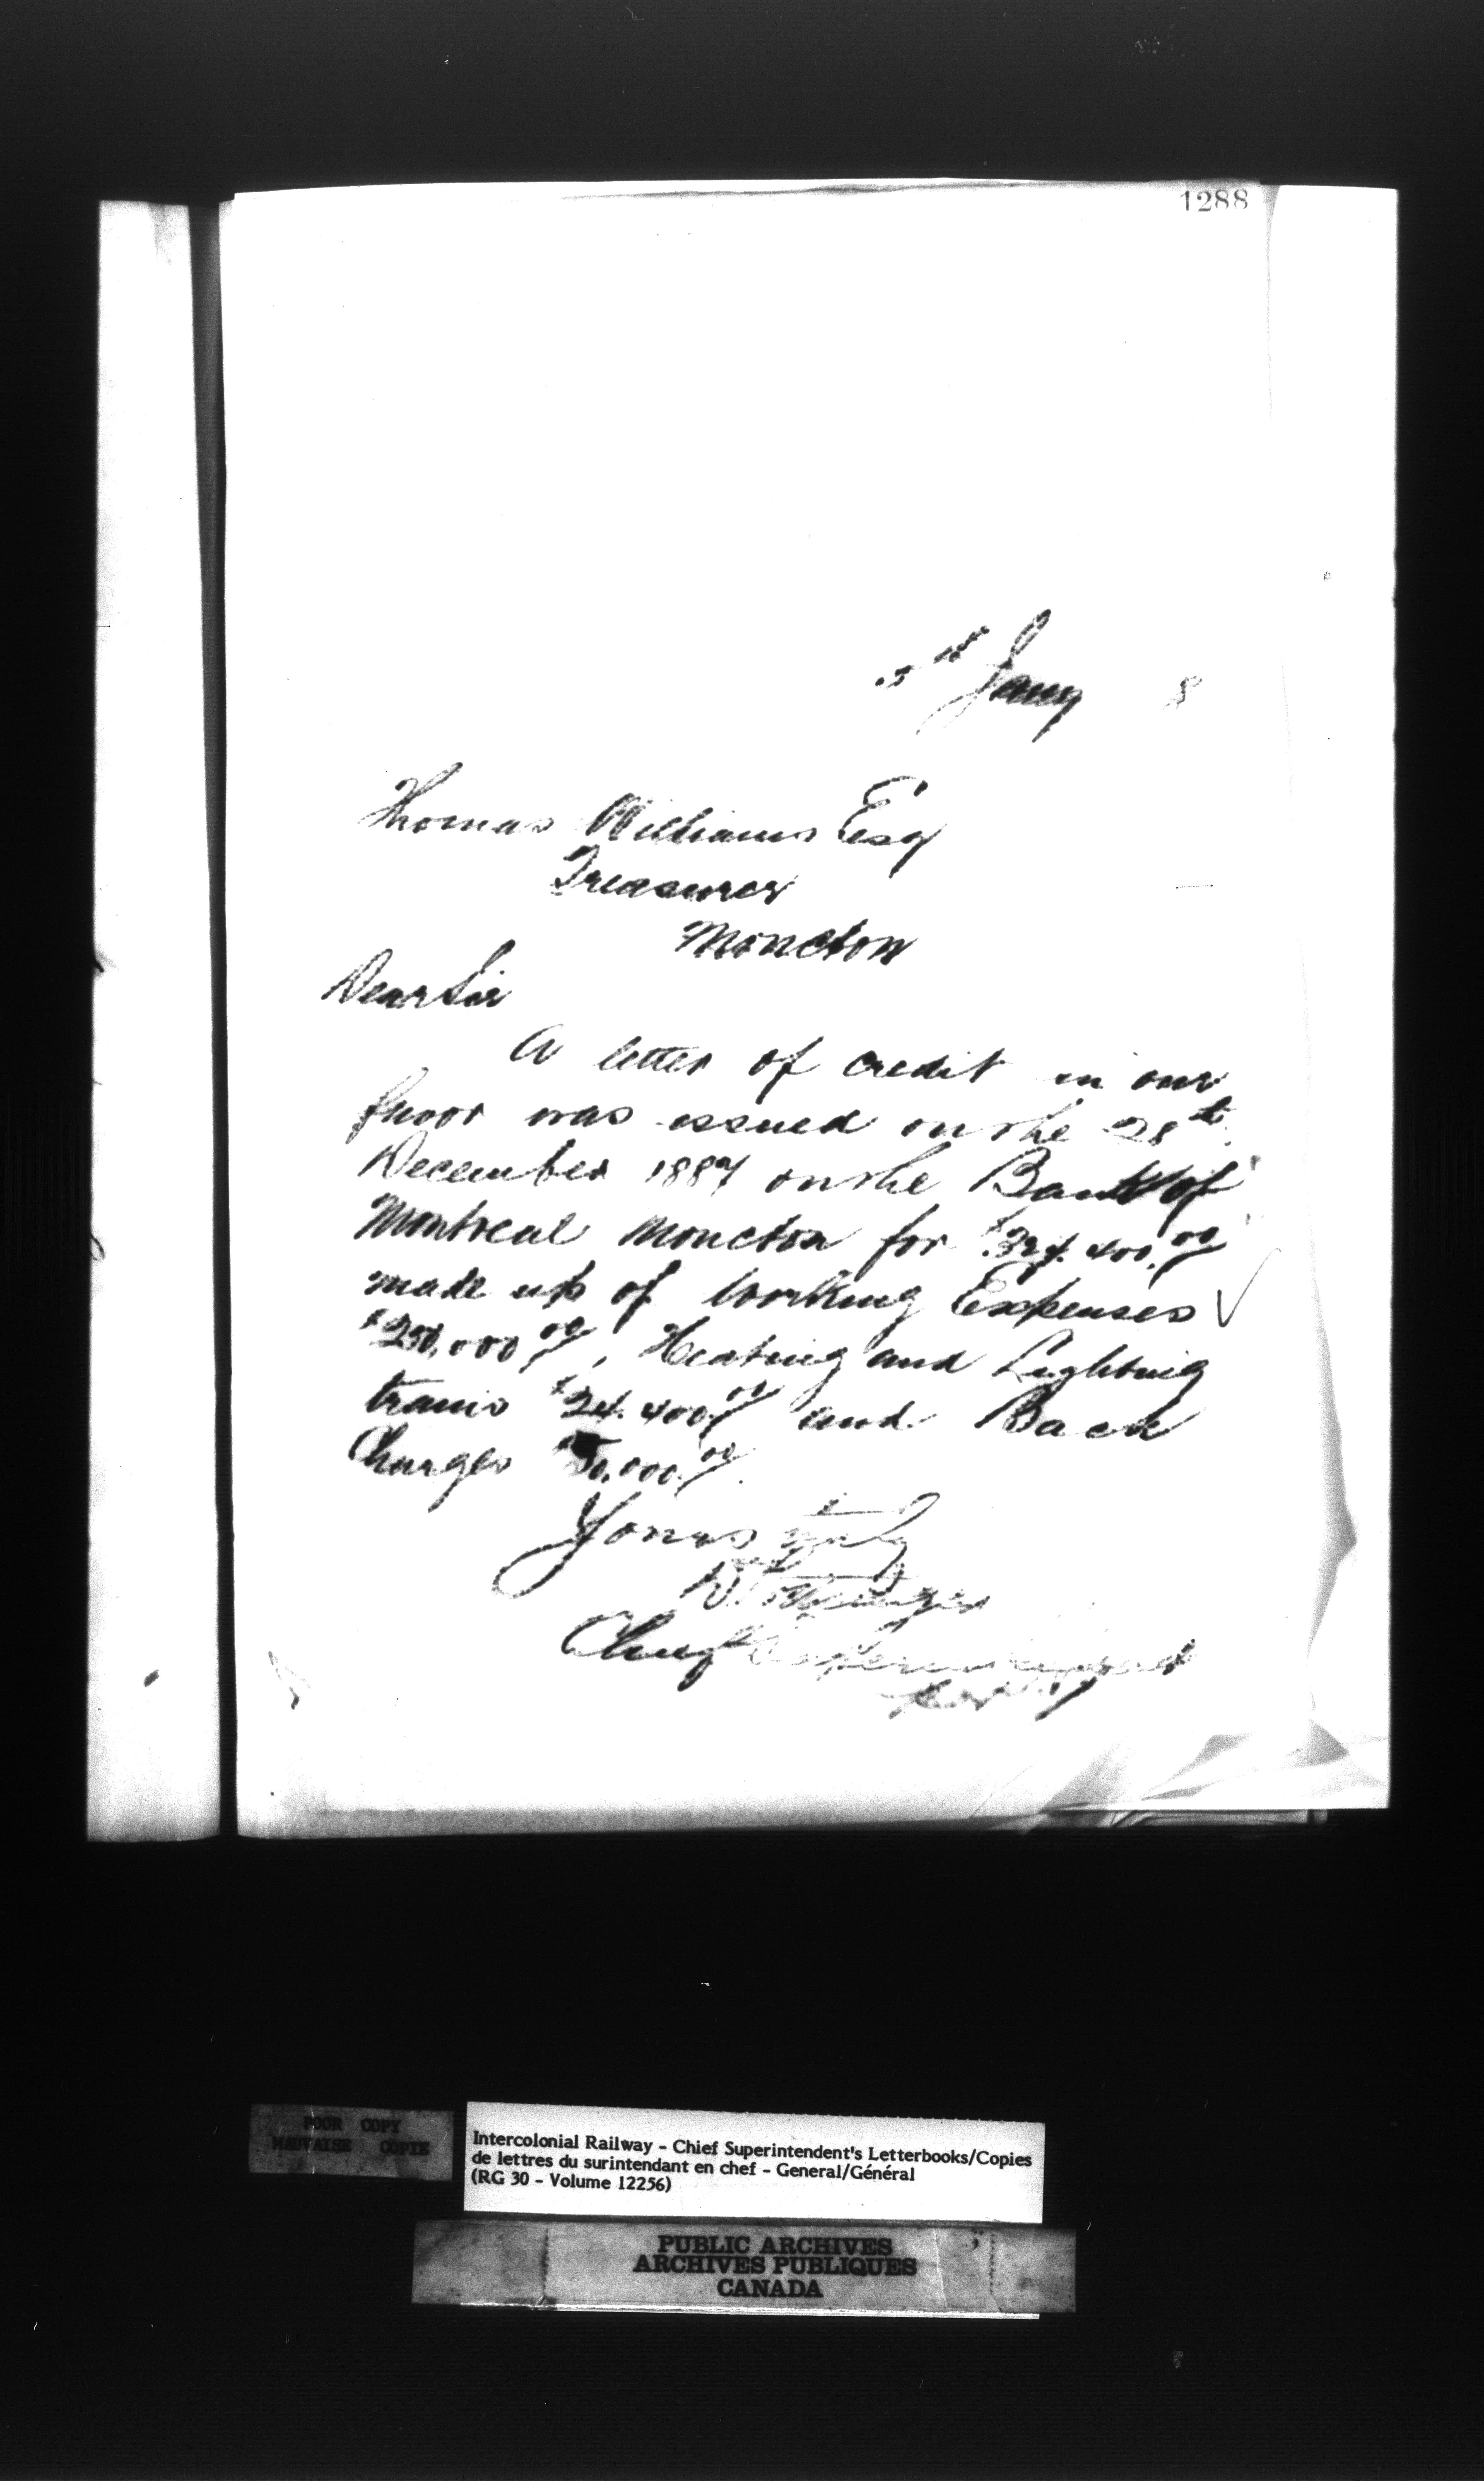 1288
5th Jany 8
Thomas Williams Esq
Treasurer
Moncton
Dear Sir
A letter of credit in our
favor was issued on the 28th
December 1887 on the Bank of
Montreal Moncton for $324.400.00
made up of Working Expenses
$250,000 00, Heating and Lighting
trains $24.400.00 and Back
Charges $50,000.00
Yours truly
D. Pottinger
Chief Superintendent
POOR COPY
MAUVAISE COPIE
Intercolonial Railway - Chief Superintendent's Letterbooks/Copies
de lettres du surintendant en chef - General/Général
(RG 30 - Volume 12256)
PUBLIC ARCHIVES
ARCHIVES PUBLIQUES
CANADA